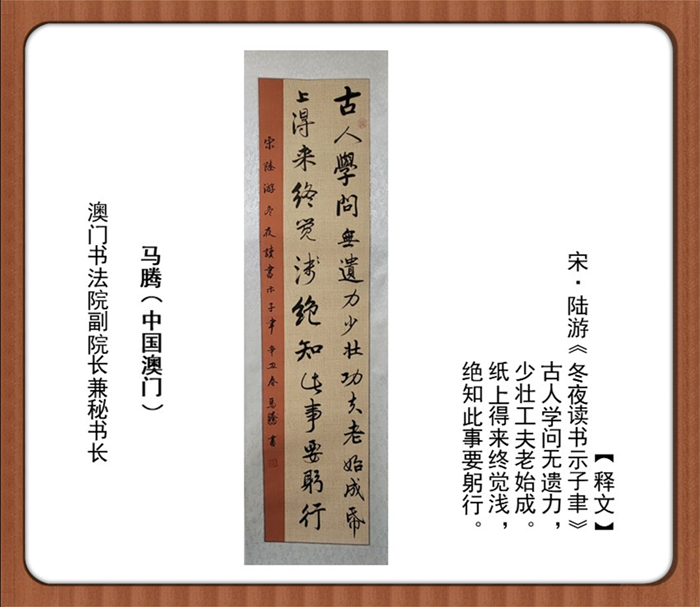 【释文】
宋·陆游《冬夜读书示子聿》
古人学问无遗力，
少壮工夫老始成。
纸上得来终觉浅，
绝知此事要躬行。
古人學問無遺力少壮功夫老始成帋
上得来终觉浅絕知此事要躬行
宋陸游冬夜讀書示子聿辛丑春馬騰書
马腾（中国澳门）
澳门书法院副院长兼秘书长